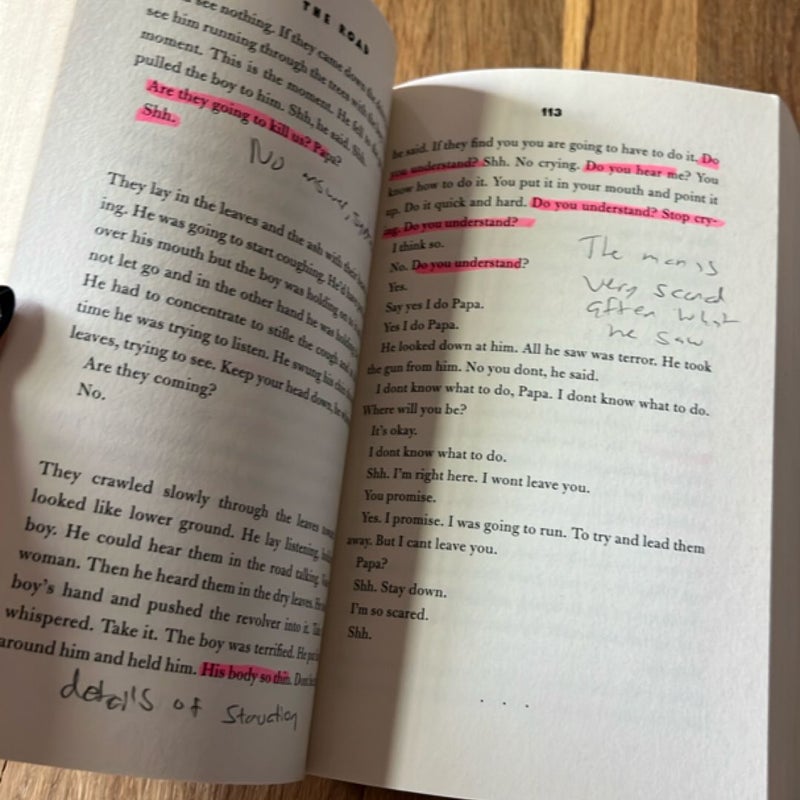 THE ROAD
see nothing. If they came down the
see him running through the trees with the
moment. This is the moment. He fell to the
pulled the boy to him. Shh, he said. Shh.
Are they going to kill us? Papa?
Shh.
No answer,
They lay in the leaves and the ash with their
ing. He was going to start coughing. He'd have
over his mouth but the boy was holding on to
not let go and in the other hand he was holding
He had to concentrate to stifle the cough and at
time he was trying to listen. He swung his chin
leaves, trying to see. Keep your head down, he
Are they coming?
No.
They crawled slowly through the leaves
looked like lower ground. He lay listening,
boy. He could hear them in the road talking.
woman. Then he heard them in the dry leaves.
boy's hand and pushed the revolver into it.
whispered. Take it. The boy was terrified. He put
around him and held him. His body so thin.
details of starvation
113
he said. If they find you you are going to have to do it. Do
you understand? Shh. No crying. Do you hear me? You
know how to do it. You put it in your mouth and point it
up. Do it quick and hard. Do you understand? Stop cry-
ing. Do you understand?
I think so.
No. Do you understand?
Yes.
Say yes I do Papa.
Yes I do Papa.
The man is
very scared
after what
he saw
He looked down at him. All he saw was terror. He took
the gun from him. No you dont, he said.
I dont know what to do, Papa. I dont know what to do.
Where will you be?
It's okay.
I dont know what to do.
Shh. I'm right here. I wont leave you.
You promise.
Yes. I promise. I was going to run. To try and lead them
away. But I cant leave you.
Papa?
Shh. Stay down.
I'm so scared.
Shh.
. . .